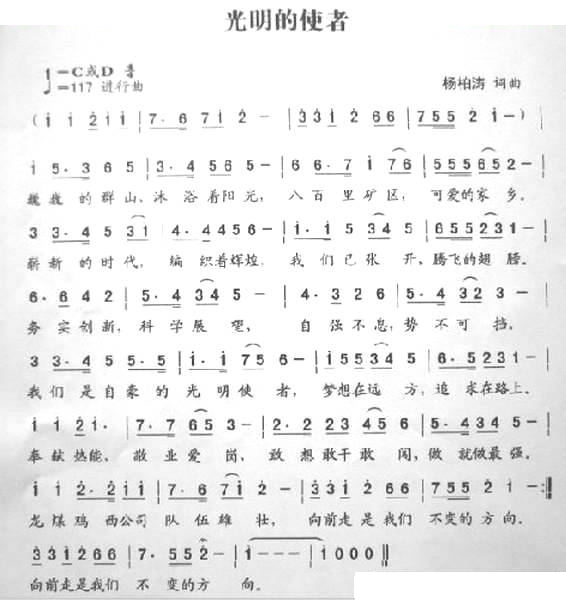 光明的使者
1=C或D
♩=117 进行曲
杨柏涛 词曲
( i i 2 i i | 7· 6 7 i 2 - | 3 3 i 2 6 6 | 7 5 5 2 i - )
1 5· 3 6 5 | 3· 4 5 6 5 - | 6 6· 7 i 7 6 | 5 5 5 6 5 2 - |
巍巍的群山,沐浴着阳光,八百里矿区,可爱的家乡。
3 3· 4 5 3 1 | 4· 4 4 5 6 - | i· i 5 3 4 5 | 6 5 5 2 3 1 - |
崭新的时代,编织着辉煌,我们已张开,腾飞的翅膀。
6· 6 4 2 | 5· 4 3 4 5 - | 4· 3 2 6 | 5· 4 3 2 3 - |
务实创新,科学展望,自强不息,势不可挡。
3 3· 4 5 5· 5 | i· i 7 5 6 - | i 5 5 3 4 5 | 6· 5 2 3 1 - |
我们是自豪的光明使者,梦想在远方,追求在路上。
i i 2 i· | 7· 7 6 5 3 - | 2· 2 2 3 4 5 6 | 5· 4 3 4 5 - |
奉献热能,敬业爱岗,敢想敢干敢闯,做就做最强。
i i 2· 2 i i | 7· 6 7 i 2 - | 3 3 i 2 6 6 | 7 5 5 2 1 - :‖
龙煤鸡西公司队伍雄壮,向前走是我们不变的方向。
3 3 i 2 6 6 | 7· 5 5 2 - | 1 - - - | 1 0 0 0 ‖
向前走是我们不变的方向。